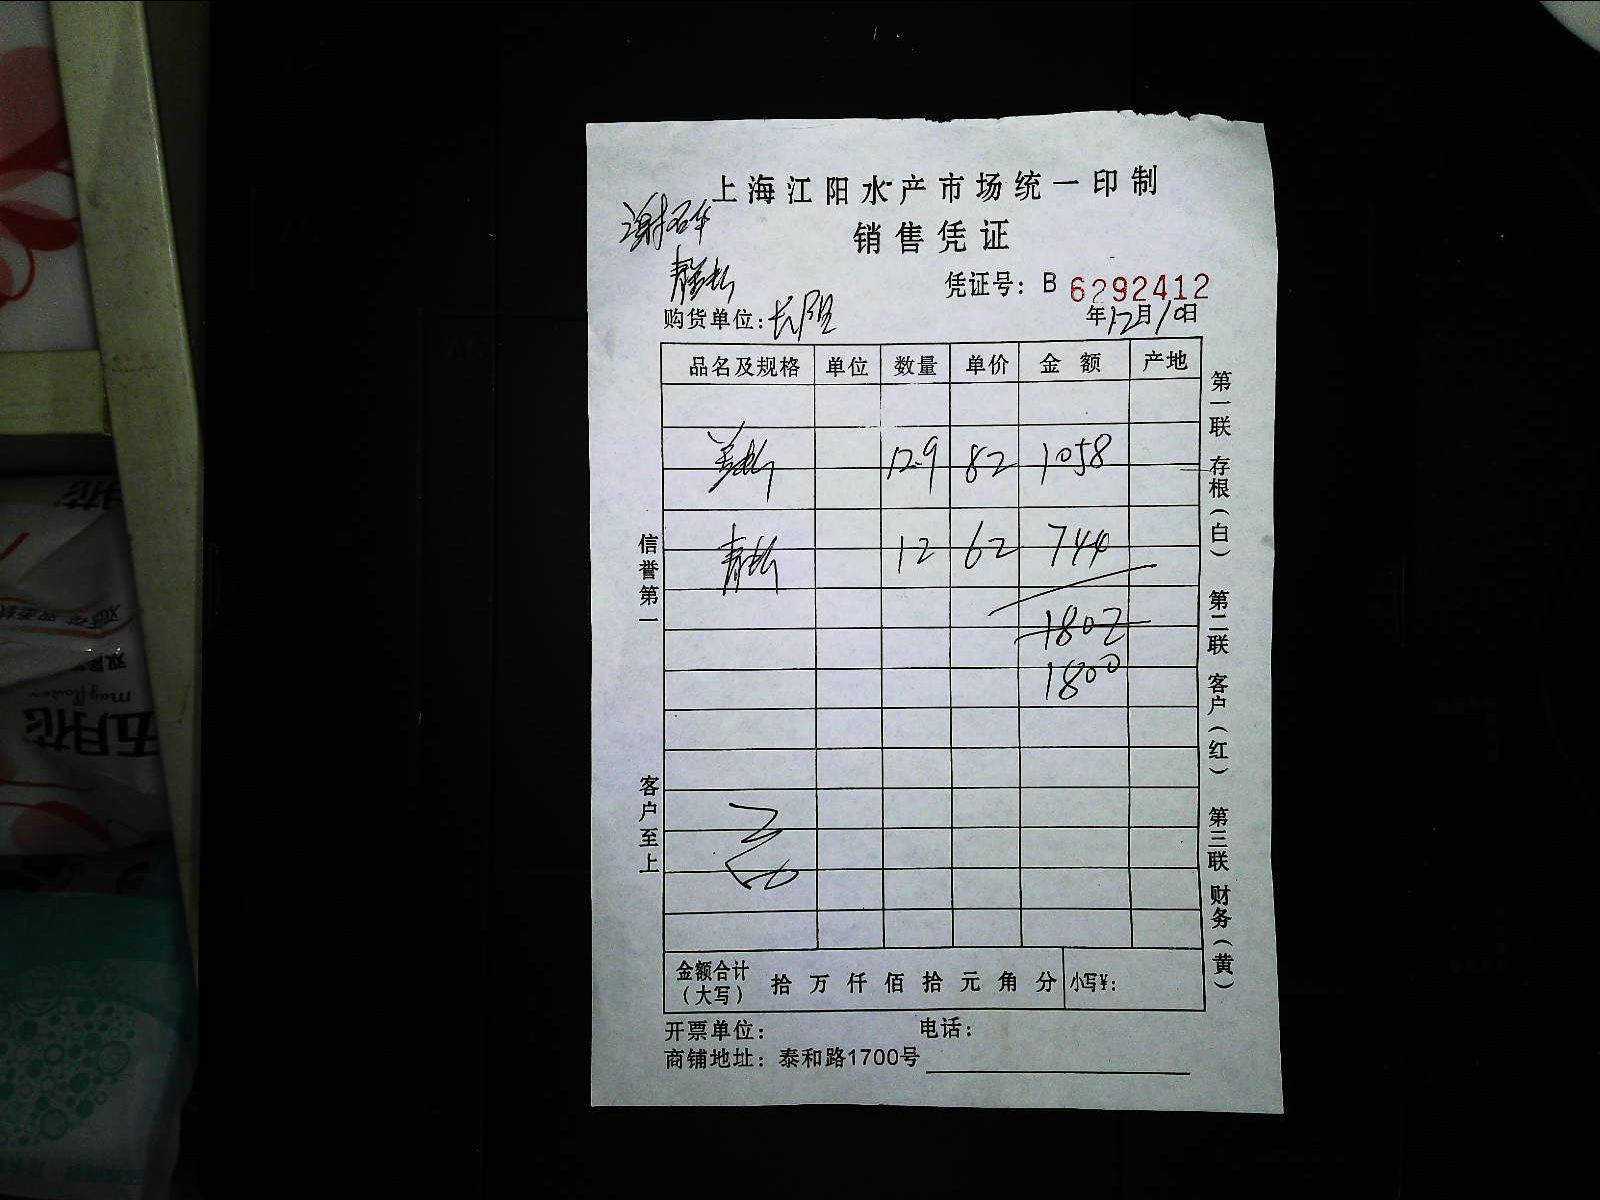 上海江阳水产市场统一印制
销售凭证
凭证号：B 6292412
购货单位：
年12月10日
品名及规格 单位 数量 单价 金额 产地
12.9 82 1058
12 62 744
1802
1800
金额合计（大写） 拾 万 仟 佰 拾 元 角 分 小写¥：
开票单位： 电话：
商铺地址：泰和路1700号
信誉第一
客户至上
第一联 存根（白）
第二联 客户（红）
第三联 财务（黄）
五月花
mayflower